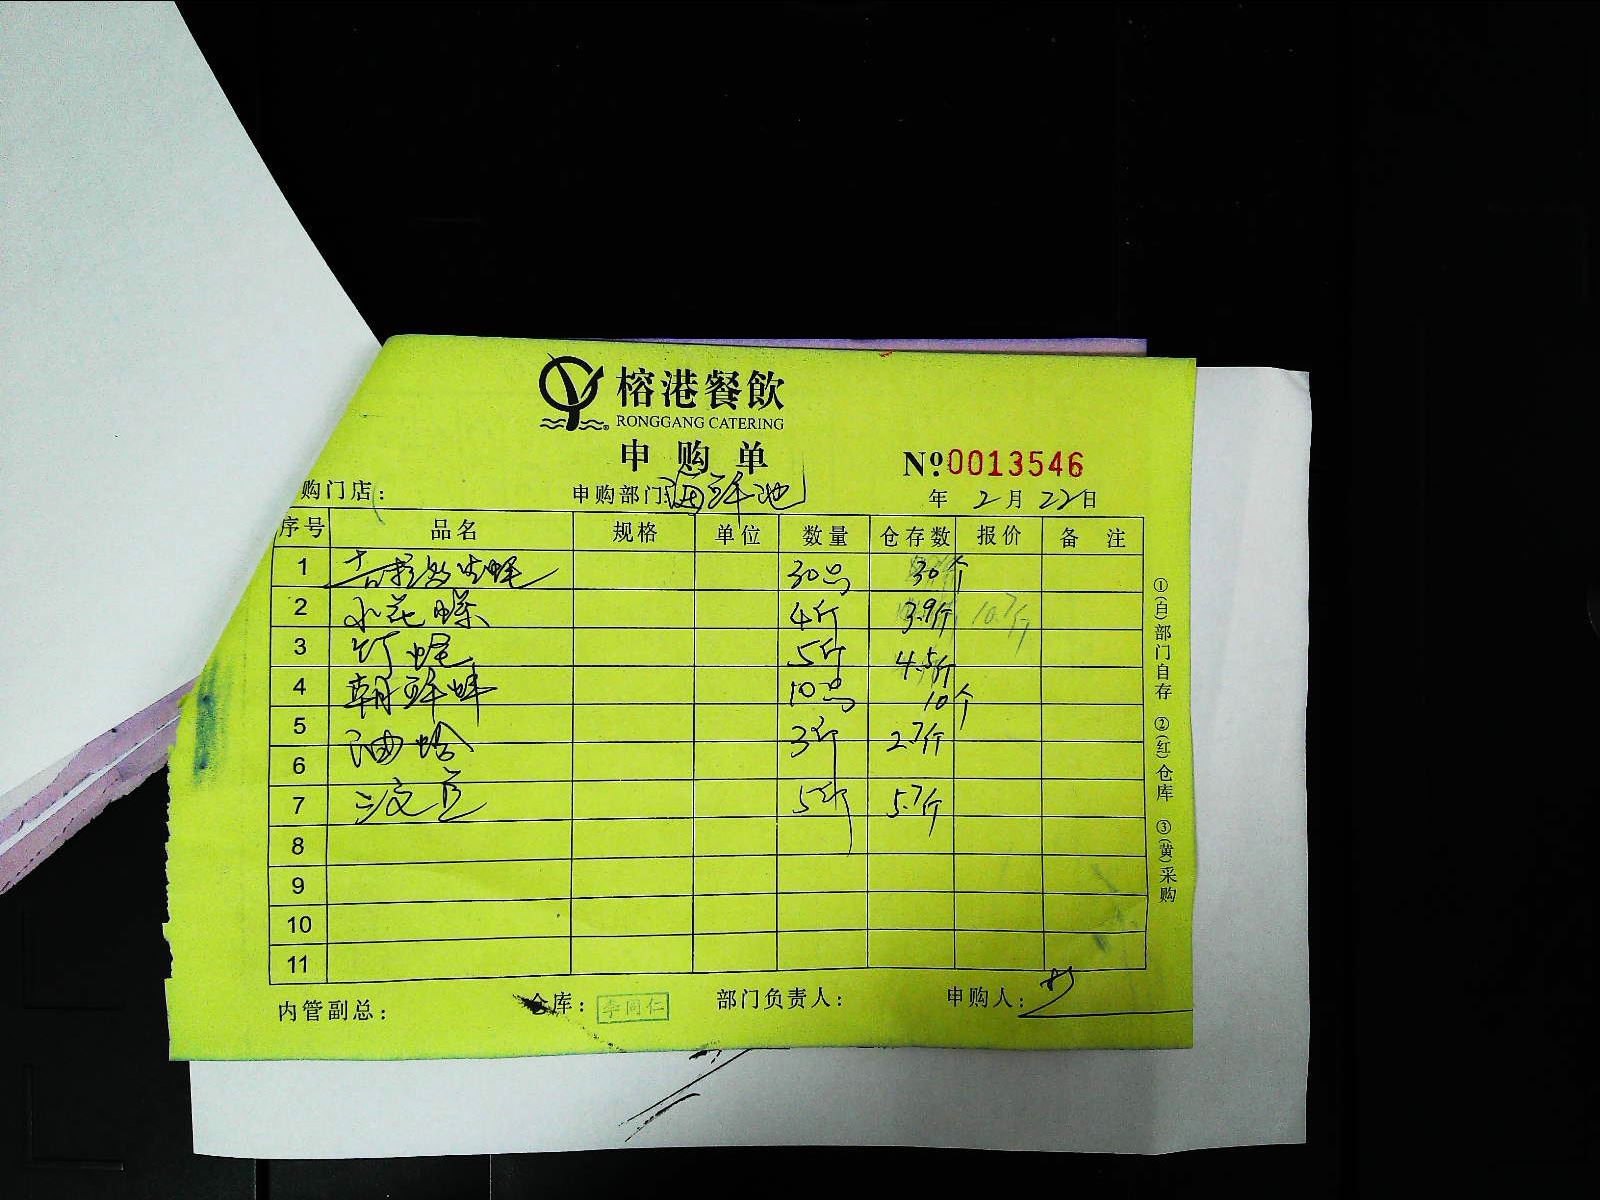 榕港餐飲
RONGGANG CATERING
申购单
№0013546
购门店： 申购部门 海鲜池 年 2 月 22 日
序号 品名 规格 单位 数量 仓存数 报价 备 注
1 30只 30个
2 小花螺 4斤 3.9斤 10.7斤
3 5斤 4.5斤
4 10只 10个
5 油蛤 3斤 2.7斤
6
7 三文 5斤 5.7斤
8
9
10
11
内管副总： 仓库： 李同仁 部门负责人： 申购人：
①(白)部门自存 ②(红)仓库 ③(黄)采购